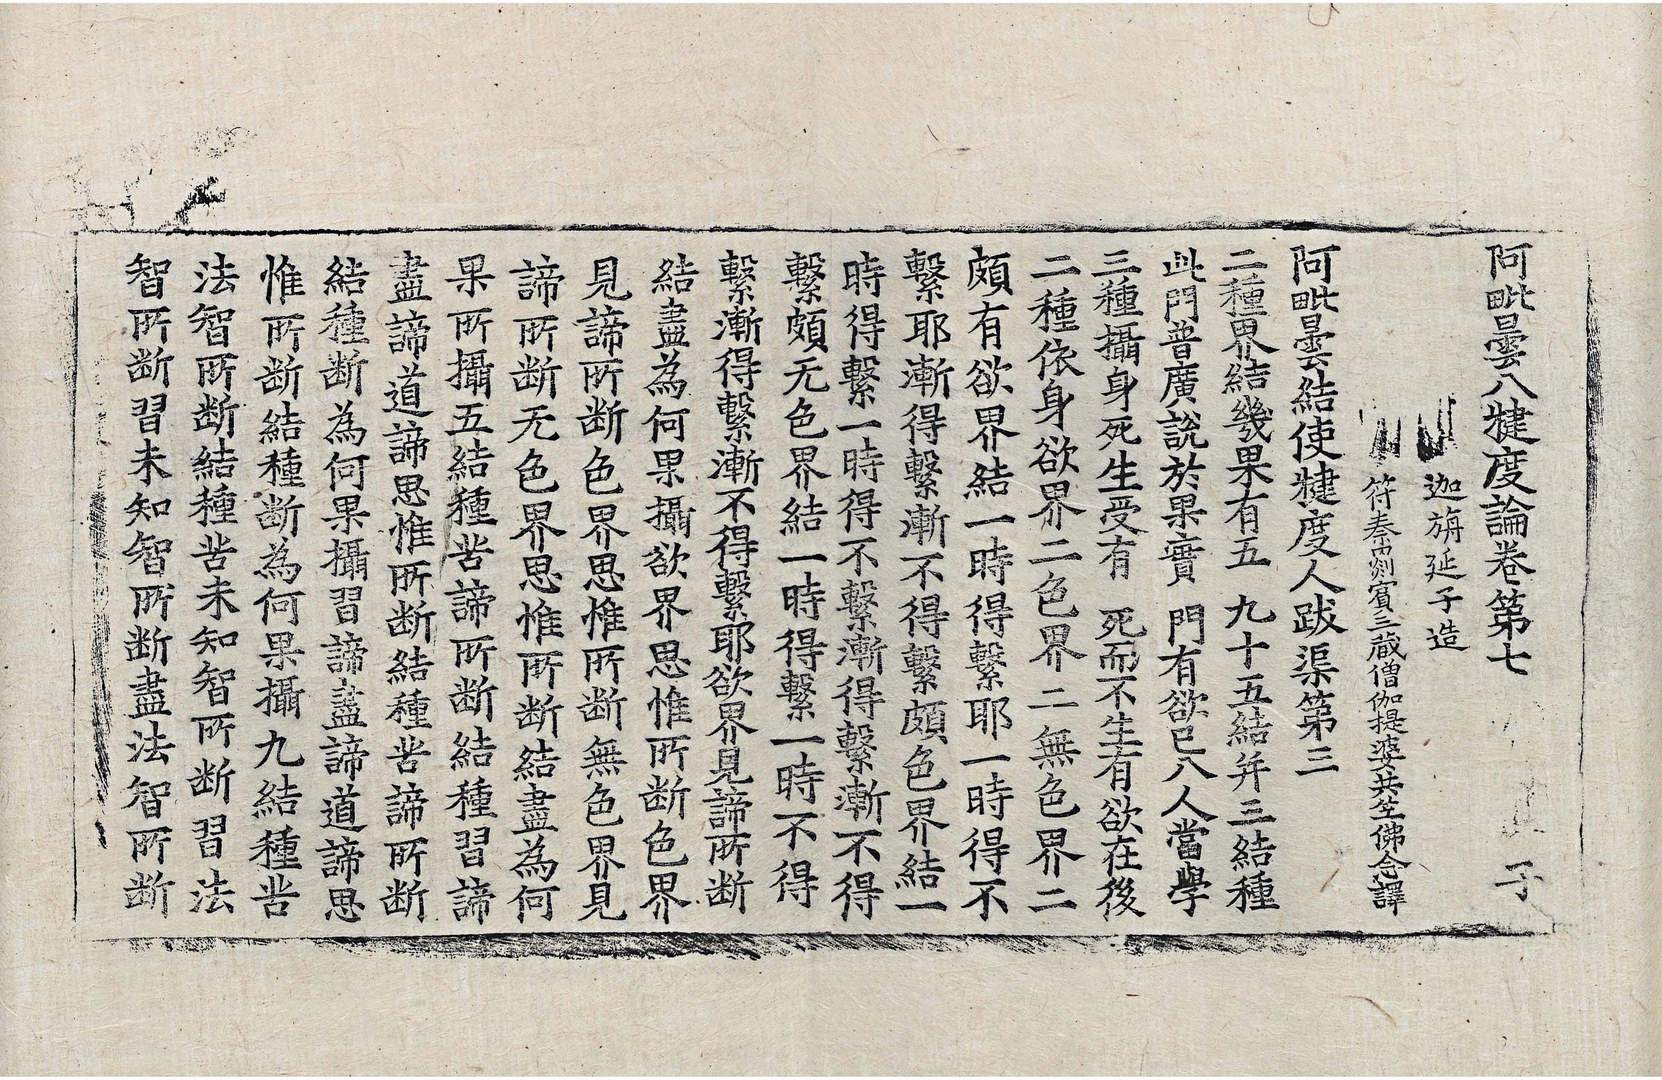 阿毗曇八犍度論卷第七　子
迦旃延子造
符秦罽賓三藏僧伽提婆共竺佛念譯
阿毗曇結使犍度人跋渠第三
二種界結幾果有五　九十五結并三結種
此門普廣說於果實　門有欲已八人當學
三種攝身死生受有　死而不生有欲在後
二種依身欲界二色界二無色界二
頗有欲界結一時得繫耶一時得不
繫耶漸得繫漸不得繫頗色界結一
時得繫一時得不繫漸得繫漸不得
繫頗无色界結一時得繫一時不得
繫漸得繫漸不得繫耶欲界見諦所斷
結盡為何果攝欲界思惟所斷色界
見諦所斷色界思惟所斷無色界見
諦所斷无色界思惟所斷結盡為何
果所攝五結種苦諦所斷結種習諦
盡諦道諦思惟所斷結種苦諦所斷
結種斷為何果攝習諦盡諦道諦思
惟所斷結種斷為何果攝九結種苦
法智所斷結種苦未知智所斷習法
智所斷習未知智所斷盡法智所斷